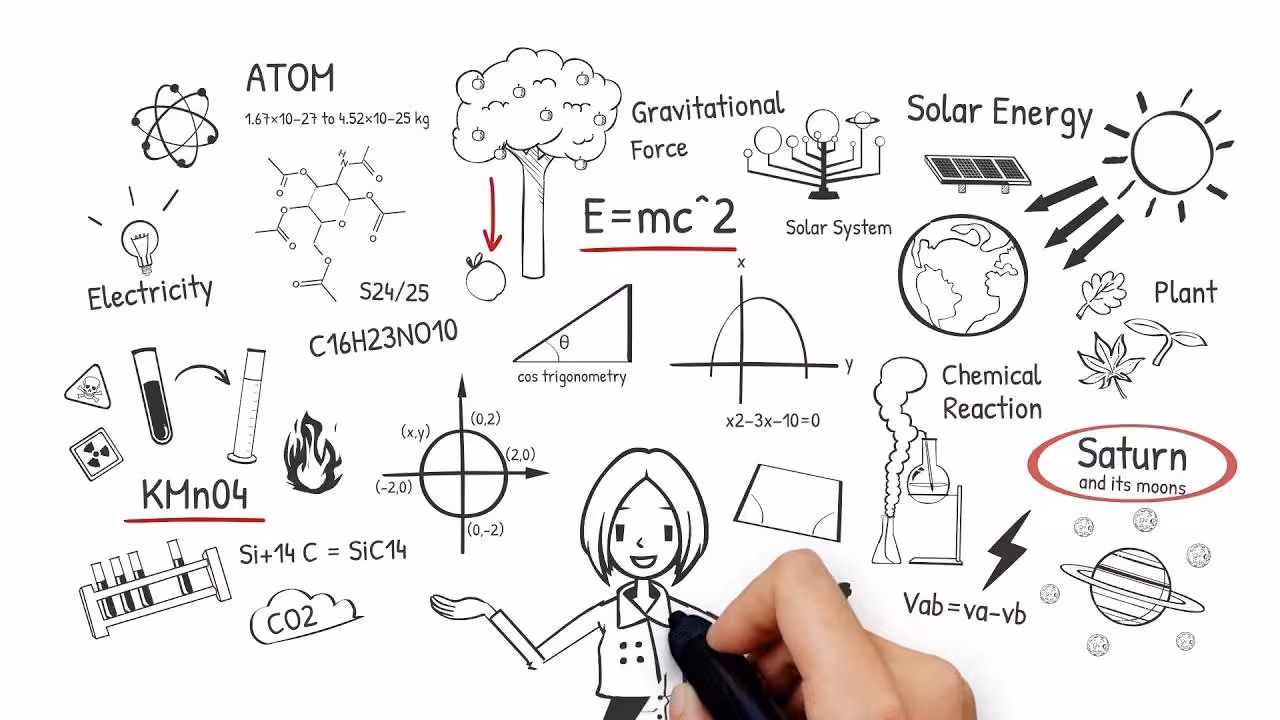 ATOM
1.67x10-27 to 4.52x10-25 kg
Gravitational
Force
Solar Energy
H
N
O
O
O
O
O
O
O
O
O
E=mc^2
Solar System
Electricity
S24/25
C16H23NO10
x
y
θ
cos trigonometry
x2-3x-10=0
Plant
Chemical
Reaction
(x,y)
(0,2)
(2,0)
(-2,0)
(0,-2)
Saturn
and its moons
KMnO4
Si+14 C = SiC14
CO2
Vab=va-vb